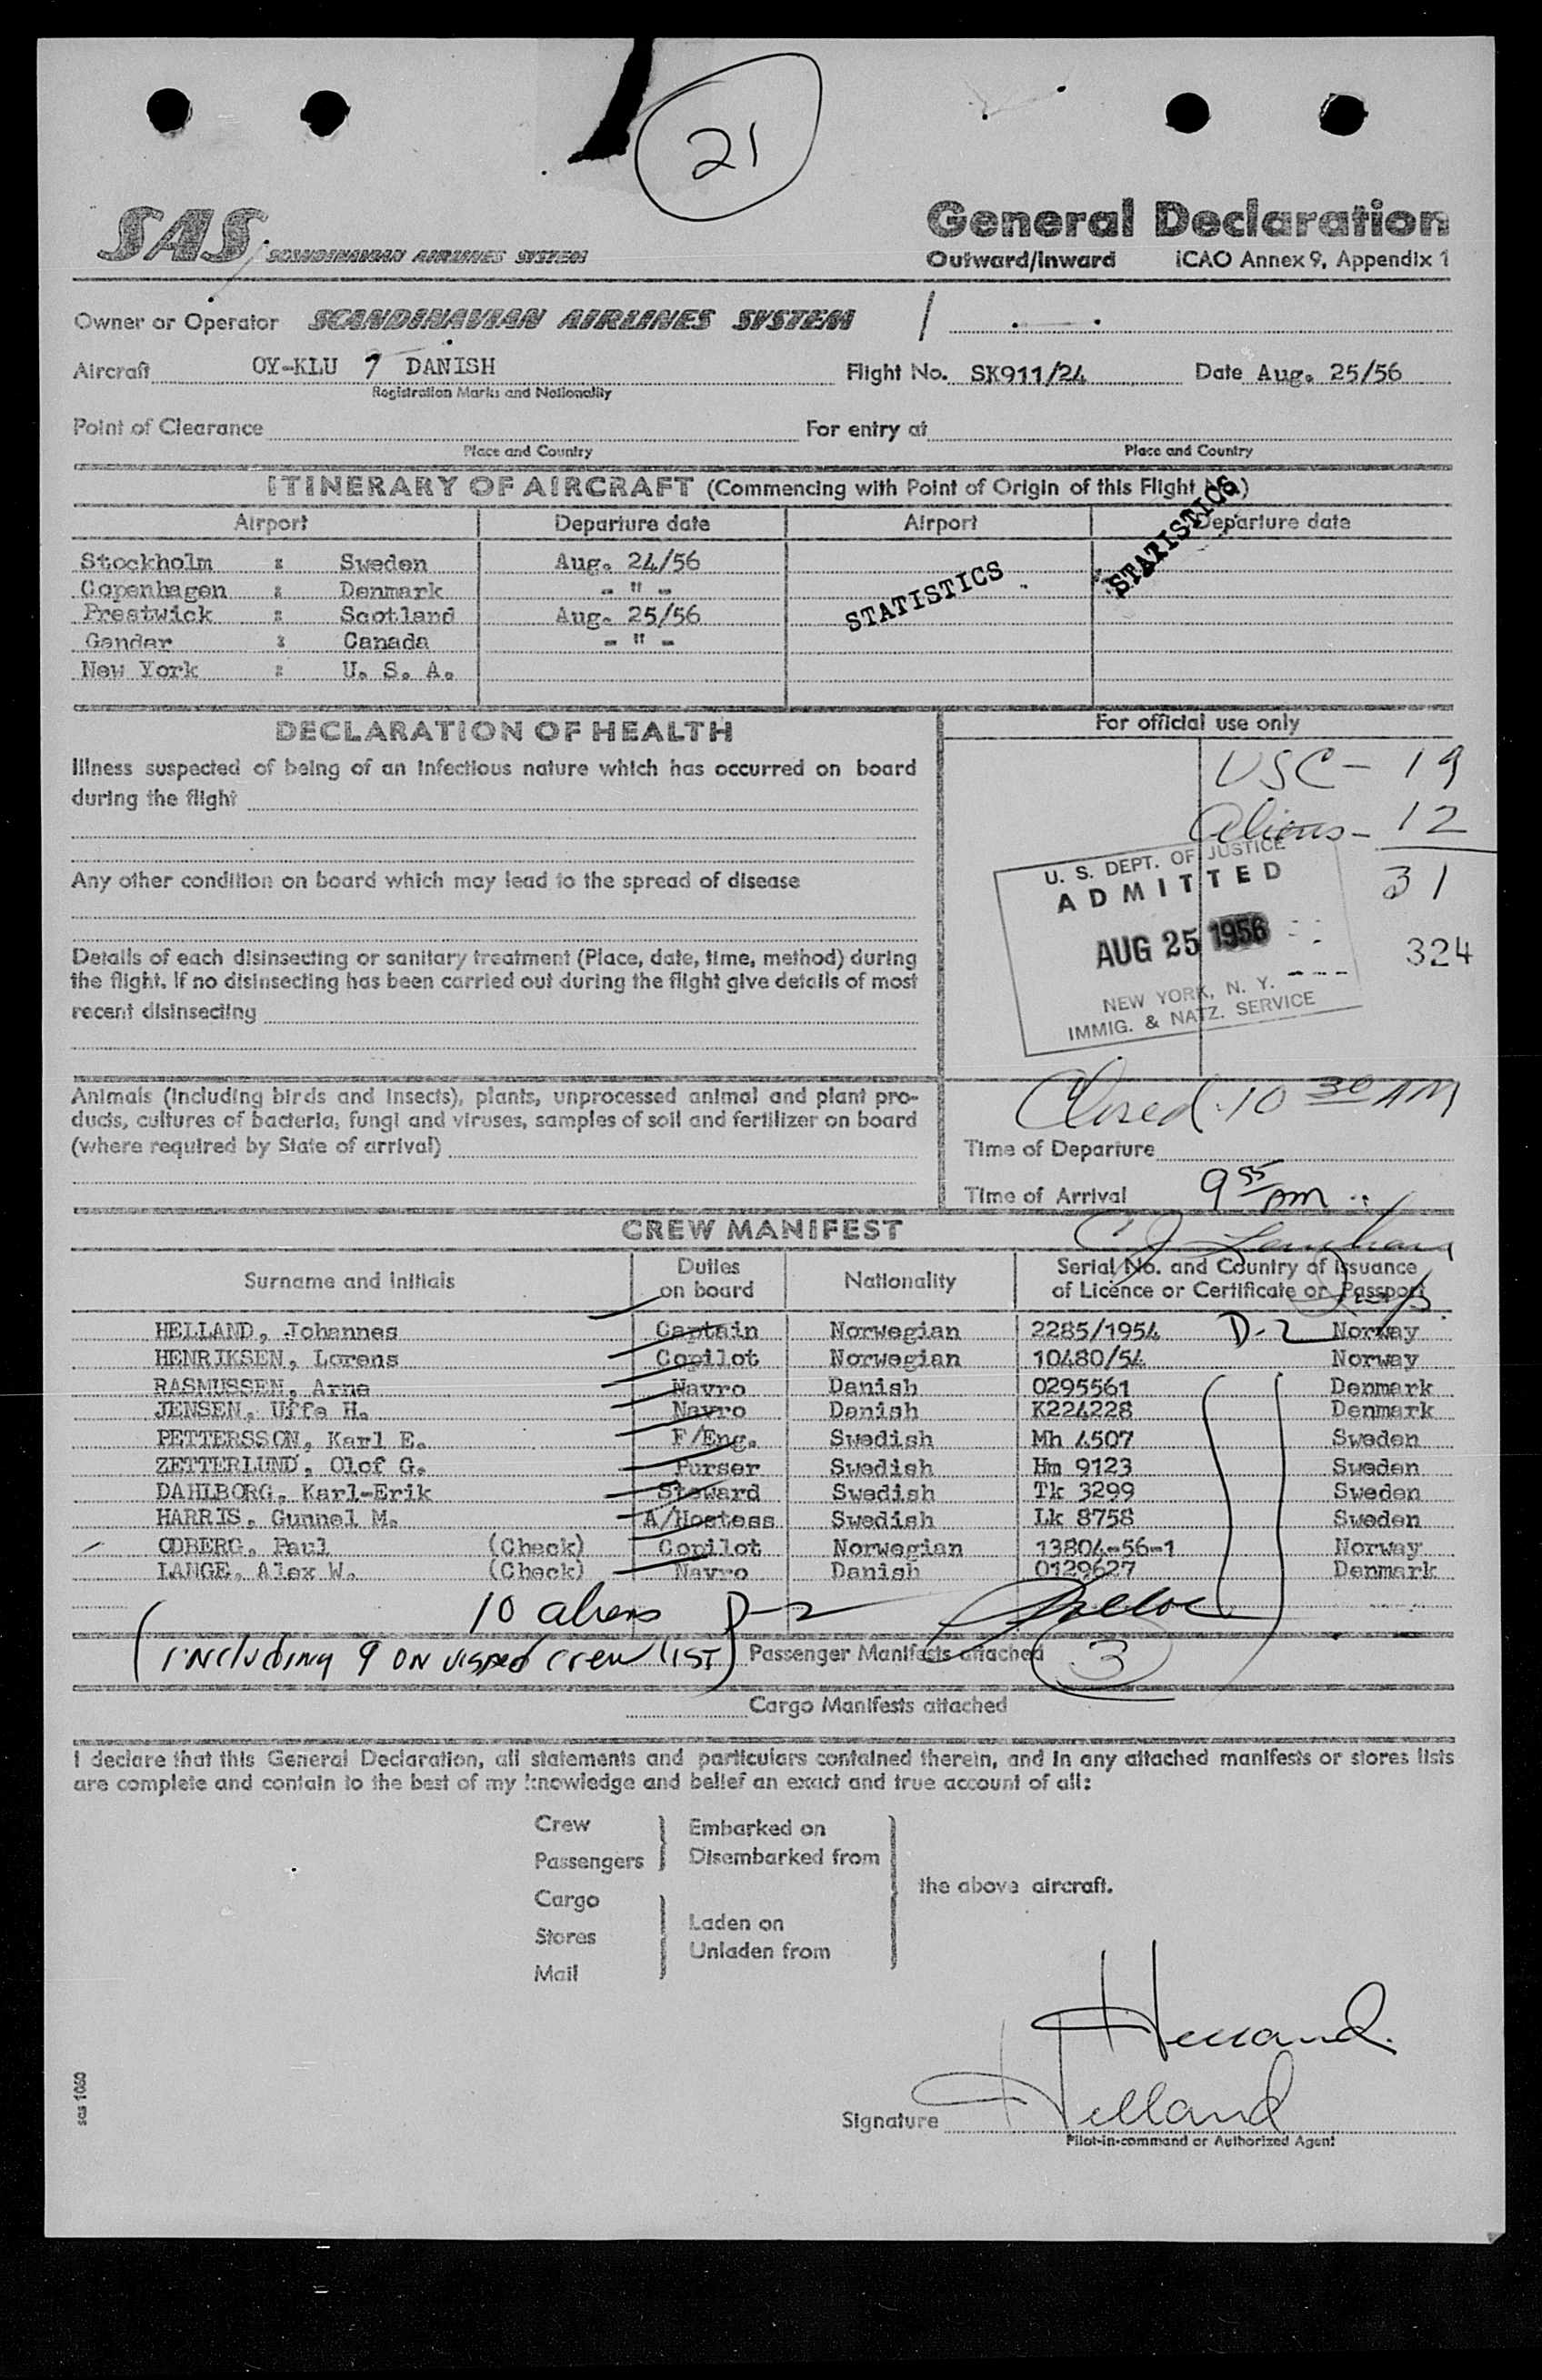 21
SAS SCANDINAVIAN AIRLINES SYSTEM
General Declaration
Outward/Inward ICAO Annex 9, Appendix 1
Owner or Operator SCANDINAVIAN AIRLINES SYSTEM
Aircraft OY-KLU DANISH Flight No. SK911/24 Date Aug. 25/56
Registration Marks and Nationality
Point of Clearance For entry at
Place and Country Place and Country
ITINERARY OF AIRCRAFT (Commencing with Point of Origin of this Flight
Airport Departure date Airport Departure date
STATISTICS
STATISTICS
Stockholm : Sweden Aug. 24/56
Copenhagen : Denmark - " -
Prestwick : Scotland Aug. 25/56
Gander : Canada - " -
New York : U. S. A.
DECLARATION OF HEALTH
Illness suspected of being of an infectious nature which has occurred on board
during the flight
Any other condition on board which may lead to the spread of disease
Details of each disinsecting or sanitary treatment (Place, date, time, method) during
the flight. If no disinsecting has been carried out during the flight give details of most
recent disinsecting
Animals (including birds and insects), plants, unprocessed animal and plant pro-
ducts, cultures of bacteria, fungi and viruses, samples of soil and fertilizer on board
(where required by State of arrival)
For official use only
USC - 19
Aliens - 12
31
324
U. S. DEPT. OF JUSTICE
ADMITTED
AUG 25 1956
NEW YORK, N. Y.
IMMIG. & NATZ. SERVICE
Closed 10 30 AM
Time of Departure
Time of Arrival 9 55 am
CREW MANIFEST
Surname and initials Duties on board Nationality Serial No. and Country of Issuance of Licence or Certificate or Passport
HELLAND, Johannes Captain Norwegian 2285/1954 D-2 Norway
HENRIKSEN, Lorens Copilot Norwegian 10480/54 Norway
RASMUSSEN, Arne Navro Danish 0295561 Denmark
JENSEN, Uffe H. Navro Danish K224228 Denmark
PETTERSSON, Karl E. F/Eng. Swedish Mh 4507 Sweden
ZETTERLUND, Olof G. Purser Swedish Hm 9123 Sweden
DAHLBORG, Karl-Erik Steward Swedish Tk 3299 Sweden
HARRIS, Gunnel M. A/Hostess Swedish Lk 8758 Sweden
ODBERG, Paul (Check) Copilot Norwegian 13804-56-1 Norway
LANGE, Alex W. (Check) Navro Danish 0129627 Denmark
10 aliens D-2
(including 9 on visaed crew list) Passenger Manifests attached 3
Cargo Manifests attached
I declare that this General Declaration, all statements and particulars contained therein, and in any attached manifests or stores lists
are complete and contain to the best of my knowledge and belief an exact and true account of all:
Crew
Passengers
Embarked on
Disembarked from
Cargo
Stores
Mail
Laden on
Unladen from
the above aircraft.
Helland.
Signature Helland
Pilot-in-command or Authorized Agent
sas 1060